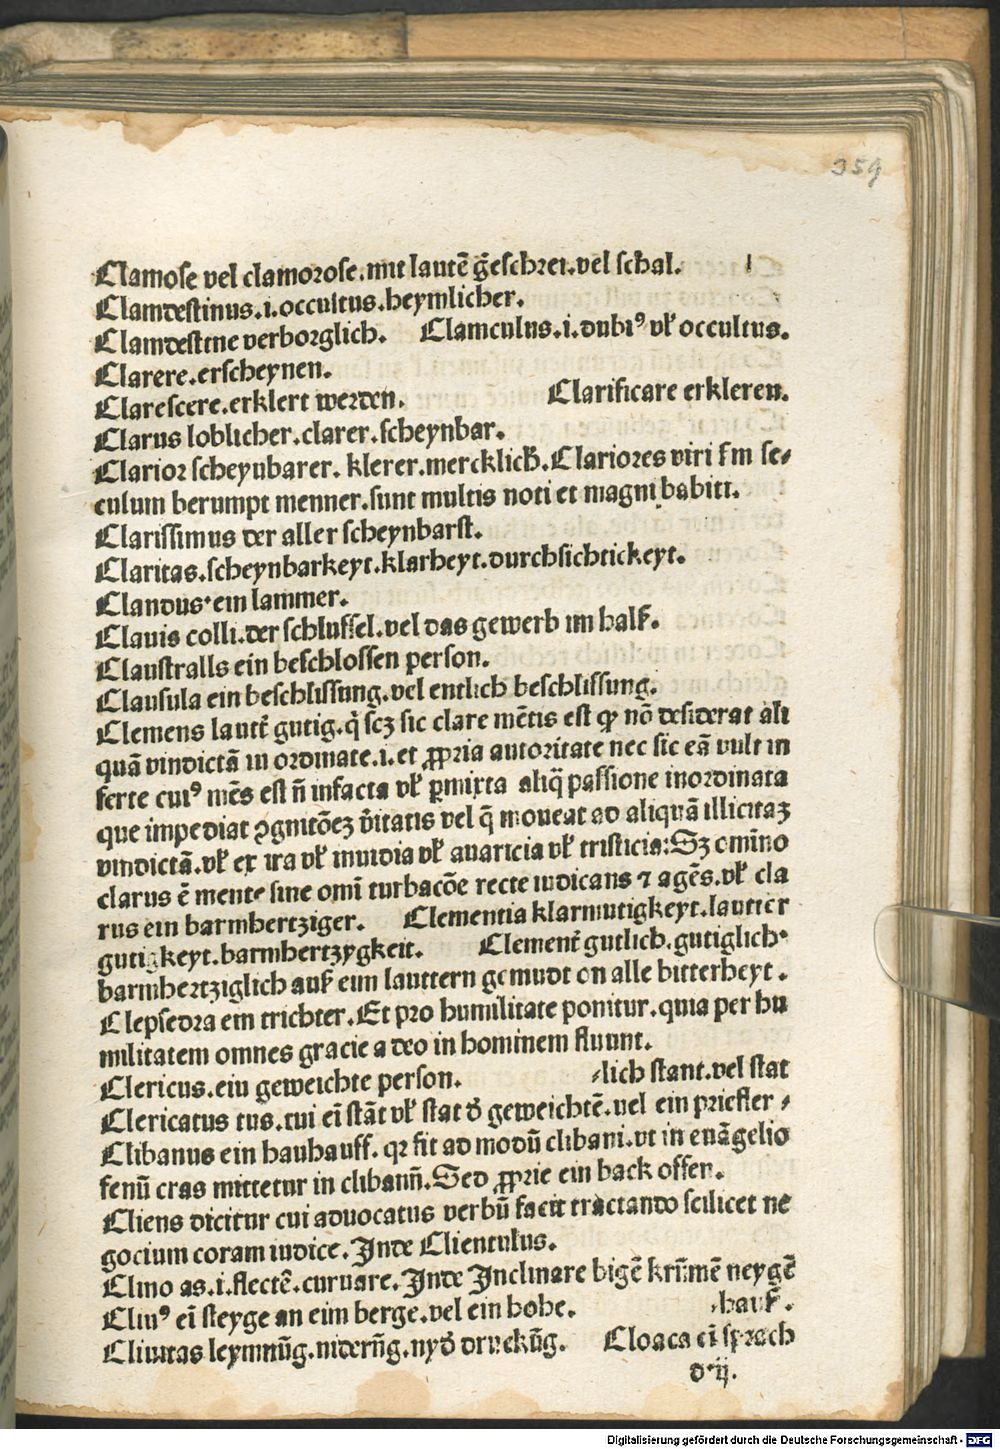 359
Clamose vel clamorose.mit lautē g̃eschrei.vel schal.
Clamdestinus.i.occultus.heymlicher.
Clamdestine verborglich. Clamculus.i.dubiꝰ vl̕ occultus.
Clarere.erscheynen.
Clarescere.erklert werden. Clarificare erkleren.
Clarus loblicher.clarer.scheynbar.
Clarior scheynbarer. klerer.mercklich̕.Clariores viri ẜm se⸗
culum berumpt menner.sunt multis noti et magni habiti.
Clarissimus der aller scheynbarst.
Claritas.scheynbarkeyt.klarheyt.durchsichtickeyt.
Claudus·ein lammer.
Clauis colli.der schlussel.vel das gewerb im halß.
Claustralls ein beschlossen person.
Clausula ein beschlissung.vel entlich beschlissung.
Clemens lautt̕ gutig.q̇ scꝫ sic clare mētis est ꝙ nō desiderat ali
quā vindictā in ordinate.i.et ꝓpria autoritate nec sic eā vult in
ferte cuiꝰ mēs est n̄ infacta vl̕ ꝑmixta aliq̄ passione inordinata
que impediat ꝯgnitōeꝫ v̕itatis vel q̄ moueat ad aliquā illicitaꝫ
vindictā.vl̕ ex ira vl̕ inuidia vl̕ auaricia vl̕ tristicia:Sꝫ omīno
clarus ē mente sine omī turbacōe recte iudicans ⁊ agēs.vl̕ cla
rus ein barmhertziger. Clementia klarmutigkeyt.lautter
gutigkeyt.barmhertzygkeit. Clement̕ gutlich.gutiglich·
barmhertziglich auß eim lauttern gemudt on alle bitterheyt.
Clepsedra ein trichter.Et pro humilitate ponitur.quia per hu
militatem omnes gracie a deo in hominem fluunt.
Clericus.ein geweichte person. ⸗lich stant.vel stat
Clericatus tus.tui eī stāt vl̕ stat d̕ geweichtē.uel ein priester⸗
Clibanus ein hauhauff. qꝛ fit ad modū clibani.vt in euāgelio
fenū cras mittetur in clibanū.Sed ꝓprie ein back offen.
Cliens dicitur cui aduocatus verbū facit tractando scilicet ne
gocium coram iudice.Inde Clientulus.
Clino as.i.flectē.curuare.Inde Inclinare bigē krūmē neygē
Cliuꝰ eī steyge an eim berge.vel ein hohe. ⸗hauß.
Cliuitas leymnūg.niderūg.nyd̕ druckūg. Cloaca eī sprach
d·ij.
Digitalisierung gefördert durch die Deutsche Forschungsgemeinschaft - DFG